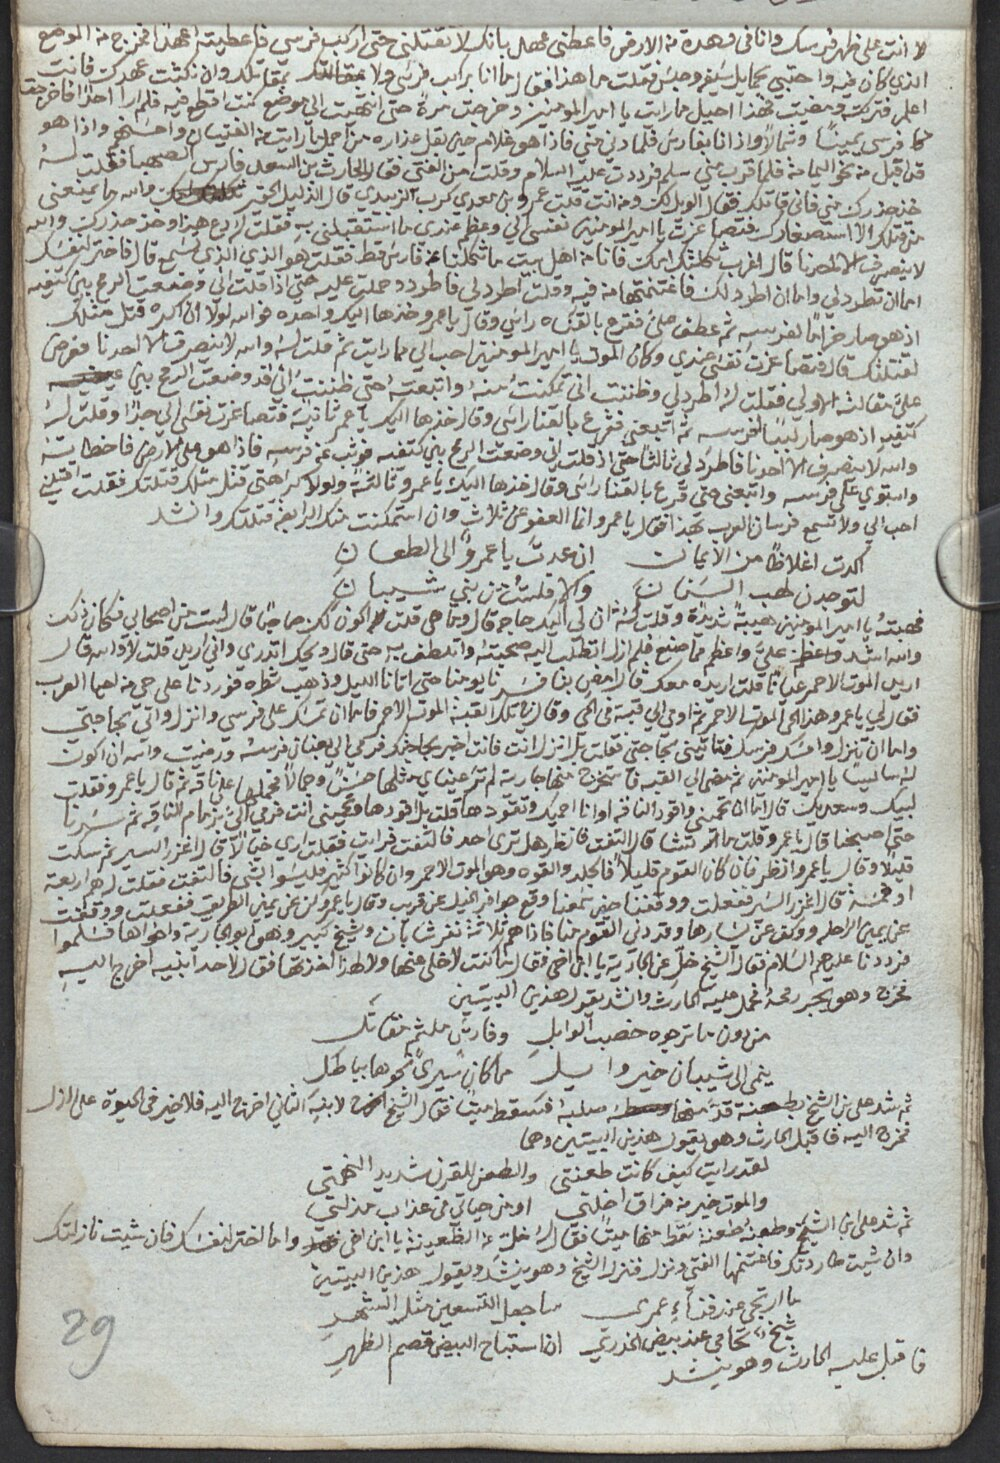 لا انت على ظهر فرسك وانا في وهدة من الارض فاعطني عهدا بانك لا تقتلني حتى اركب فرسي فاعطيته عهدا فخرج من الموضع
الذي كان فيه واحتبى بحمايل سيفه وجلس فقلت ما هذا فقال ما انا براكب فرسي ولا بمقاتلك وان نكثت عهدك فانت
اعلم فتركته ومضيت فهذا احيل ما رايت يا امير المومنين وخرجت مرة حتى انتهيت الى موضع كنت اقطع فيه فلم ار احدا فاخرجت
فرسي يمينا وشمالا واذا انا بفارس فلما دنى مني فاذا هو غلام حين بقل عذاره من اجمل ما رايت من الفتيان واحسنهم واذا هو
قد اقبل من نحو اليمامة فلما قرب مني سلم فرددت عليه السلام وقلت من الفتى فقال الحارث بن السعد فارس الصهبا فقلت له
خذ حذرك مني فاني قاتلك فقال الويل لك ومن انت قلت عمرو بن معدي كرب الزبيدي قال الذليل الحقير والله ما يمنعني
من قتلك الا استصغارك فتصاغرت يا امير المومنين نفسي الي وعظم عندي ما استقبلني به فقلت له دع هذا وخذ حذرك والله
لا ينصرف الا احدنا قال اغرب ثكلتك امك فانا من اهل بيت ما ثكلنا فارس قط فقلت هو الذي تسمع قال فاختر لنفسك
اما ان تطرد لي واما ان اطرد لك فاغتنمتها منه وقلت اطرد لي فاطرد وحملت عليه حتى اذا قلت اني وضعت الرمح بين كتفيه
اذ هو صار حزاما لفرسه ثم عطف علي فقرع بالقناه راسي وقال يا عمرو خذها اليك واحده فوالله لولا اني اكره قتل مثلك
لقتلتك قال فتصاغرت نفسي عندي وكان الموت يا امير المومنين احب الي مما رايت ثم قلت له والله لا ينصرف الا احدنا فعرض
علي مقالته الاولى فقلت له اطرد لي وظننت اني تمكنت منه واتبعته حتى ظننت اني قد وضعت الرمح بين
كتفيه اذ هو صار لببا لفرسه ثم اتبعني فقرع بالقنا راسي وقال خذها اليك يا عمرو ثانية فتصاغرت نفسي الي جدا وقلت له
والله لا ينصرف الا احدنا فاطرد لي ثالثا حتى اذ قلت اني وضعت الرمح بين كتفيه فوثب عن فرسه فاذا هو على الارض فاخطاته
واستوى على فرسه واتبعني حتى قرع بالقنا راسي وقال خذها اليك يا عمرو ثالثة ولولا كراهتي قتل مثلك قتلتك فقلت اقتلني
احب الي ولا تسمع فرسان العرب بهذا فقال يا عمرو انما العفو عن ثلاث وان استمكنت منك الرابعة قتلتك وانشد
اكدت اغلاظا من الايمان    ان عدت يا عمرو الى الطعان
لتوجدن لهب السنان    والا فلست من بني شيبان
فهبته يا امير المومنين هيبة شديدة وقلت له ان لي اليك حاجة قال وما هي قلت اكون لك صاحبا قال لست من اصحابي فكان ذلك
والله اشد واعظم علي واعظم مما صنع فلم ازل اتطلب اليه صحبته واتلطف به حتى قال ويحك اتدري واني اريد قلت لا والله قال
اريد الموت الاحمر عيانا قلت اريده معك قال امض بنا فسرنا يومنا حتى اتانا الليل وذهب شطره فوردنا على حي من احيا العرب
فقال لي يا عمرو هذا الحي الموت الاحمر ثم اومى الي قبة في الحي وقال في تلك القبة الموت الاحمر فاما ان تمسك على فرسي وانزل واتي بحاجتي
واما ان تنزل وامسك فرسك فتاتيني بحاجتي فقلت بل انزل انت فانت اخبر بحاجتك فرمى الي بعنان فرسه ورضيت والله ان اكون
له سايسا يا امير المومنين ثم مضى الى القبة فاستخرج منها جارية لم تر عيناي مثلها حسنا وجمالا فحملها على ناقة ثم قال يا عمرو فقلت
لبيك وسعديك قال اما ان تحميني واقود الناقة او انا احميك وتقودها قلت بل اقودها وتحميني انت فرمى الي بزمام الناقه ثم سرنا
حتى اصبحنا قال يا عمرو قلت ما تشا قال التفت فانظر هل ترى احد فالتفت فرايت فقلت ارى خيالا قال اغزر السير ثم سكت
قليلا وقال يا عمرو انظر فان كان القوم قليلا فالجلد والقوه وهو الموت الاحمر وان كانوا كثير فليسوا بشي فالتفت فقلت لهم اربعة
او خمسة قال اغزر السير ففعلت ووقفنا حين سمعنا وقع حوافر الخيل عن قريب وقال يا عمرو كن عن يمين الطريق ففعلت ووقفت
عن يمين الراحلة ووقف عن يسارها وقد دنى القوم منا فاذا هم ثلاثة نفر شابان وشيخ كبير وهو ابو الجارية واخواها فسلموا
فرددنا عليهم السلام فقال الشيخ خل عن الجارية يا ابن اخي فقال ما كنت لاخلي عنها ولا لهذا اخذتها فقال لاحد ابنيه اخرج اليه
فخرج وهو يجر رمحه فحمل عليه الحارث وانشد يقول هذين البيتين
من دون ما ترجوه خضب الوابل    وفارس ملثم مقاتل
ينمى الى شيبان خير وايل    ما كان سيري نحوها بباطل
ثم شد على بن الشيخ بطعنة قد منها صلبه فسقط ميتا فقال الشيخ لابنه الثاني اخرج اليه فلا خير في الحيوة على الذل
فخرج اليه فاقبل الحارث وهو يقول هذين البيتين وهما
لقد رايت كيف كانت طعنتي    والطعن للقرن شديد الهمتي
والموت خير من فراق اخلتي    او من حياتي في عذاب مذلتي
ثم شد على ابن الشيخ وطعنه طعنة سقط منها ميتا فقال له خل عن الظعينة يا ابن اخي واما اختر لنفسك فان شيت نازلتك
وان شيت طاردتك فاغتنمها الفتى ونزل فنزل الشيخ وهو ينشد ويقول هذين البيتين
ما ارتجي عند فناء عمري    ساجعل التسعين مثل الشهر
شيخ تحامى عند بيض الخدر    ان استباح البيض قصم الظهر
فاقبل عليه الحارث وهو ينشد
29